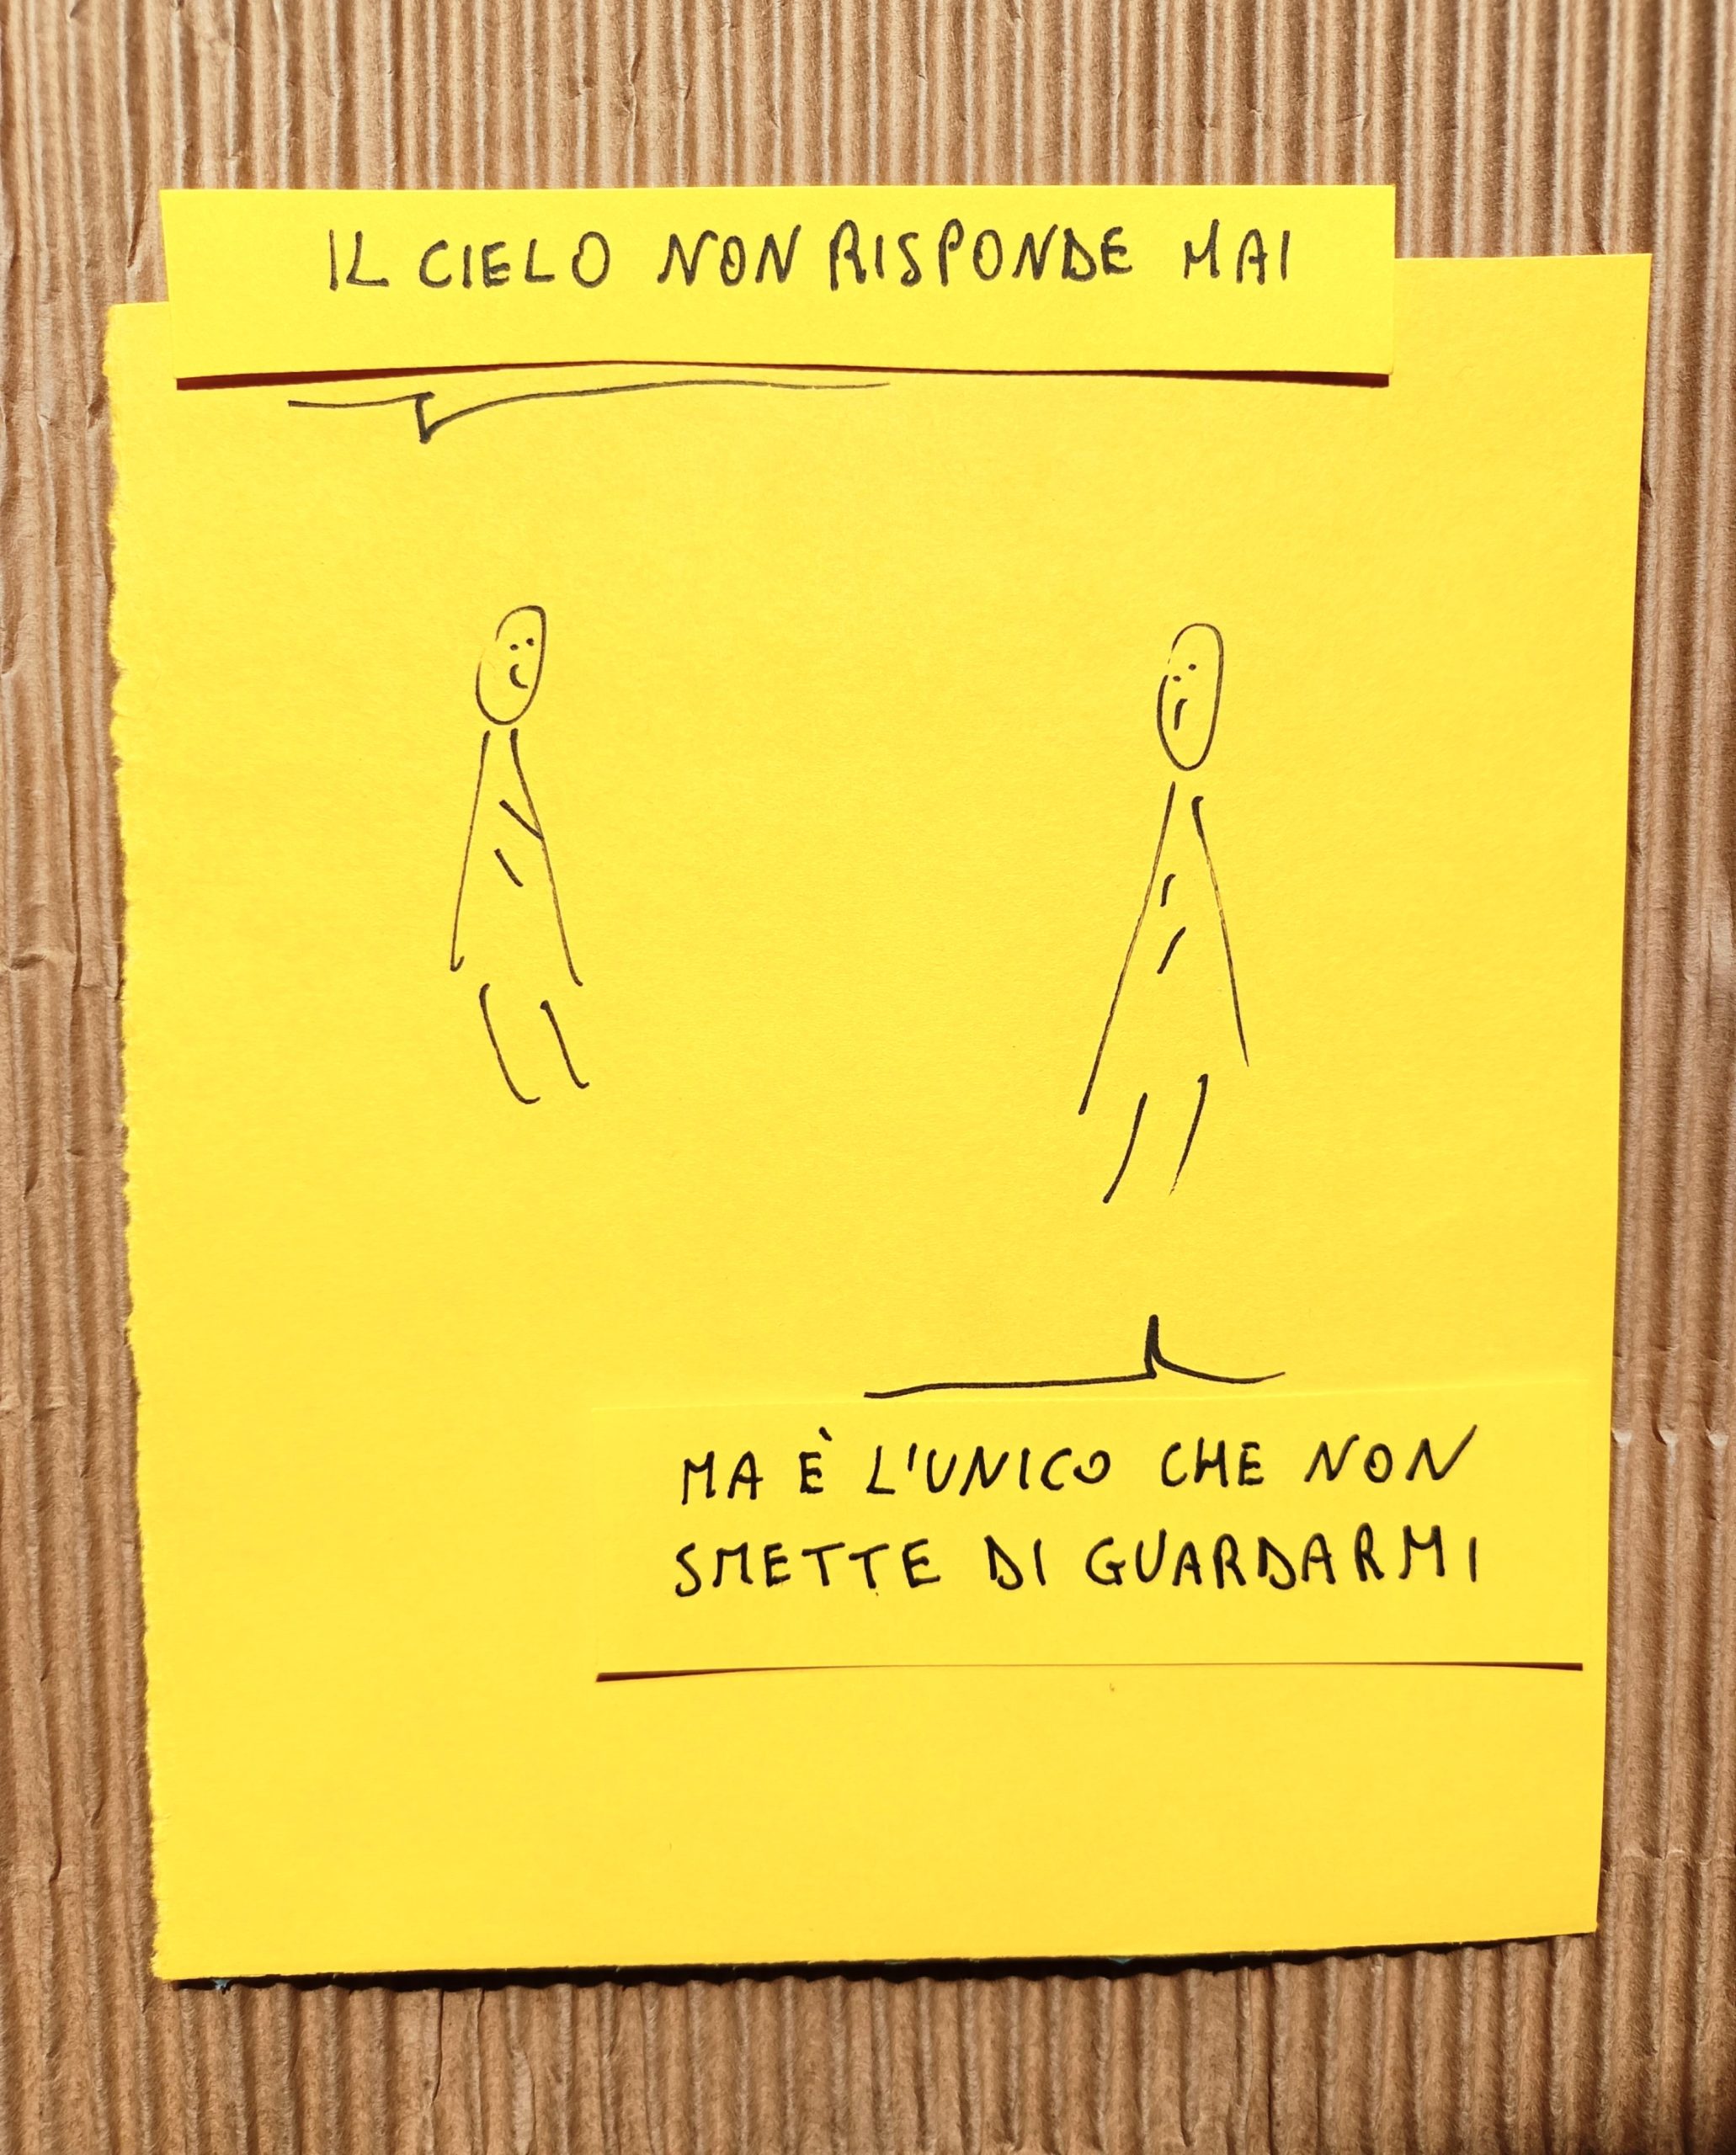 IL CIELO NON RISPONDE MAI
MA È L'UNICO CHE NON
SMETTE DI GUARDARMI